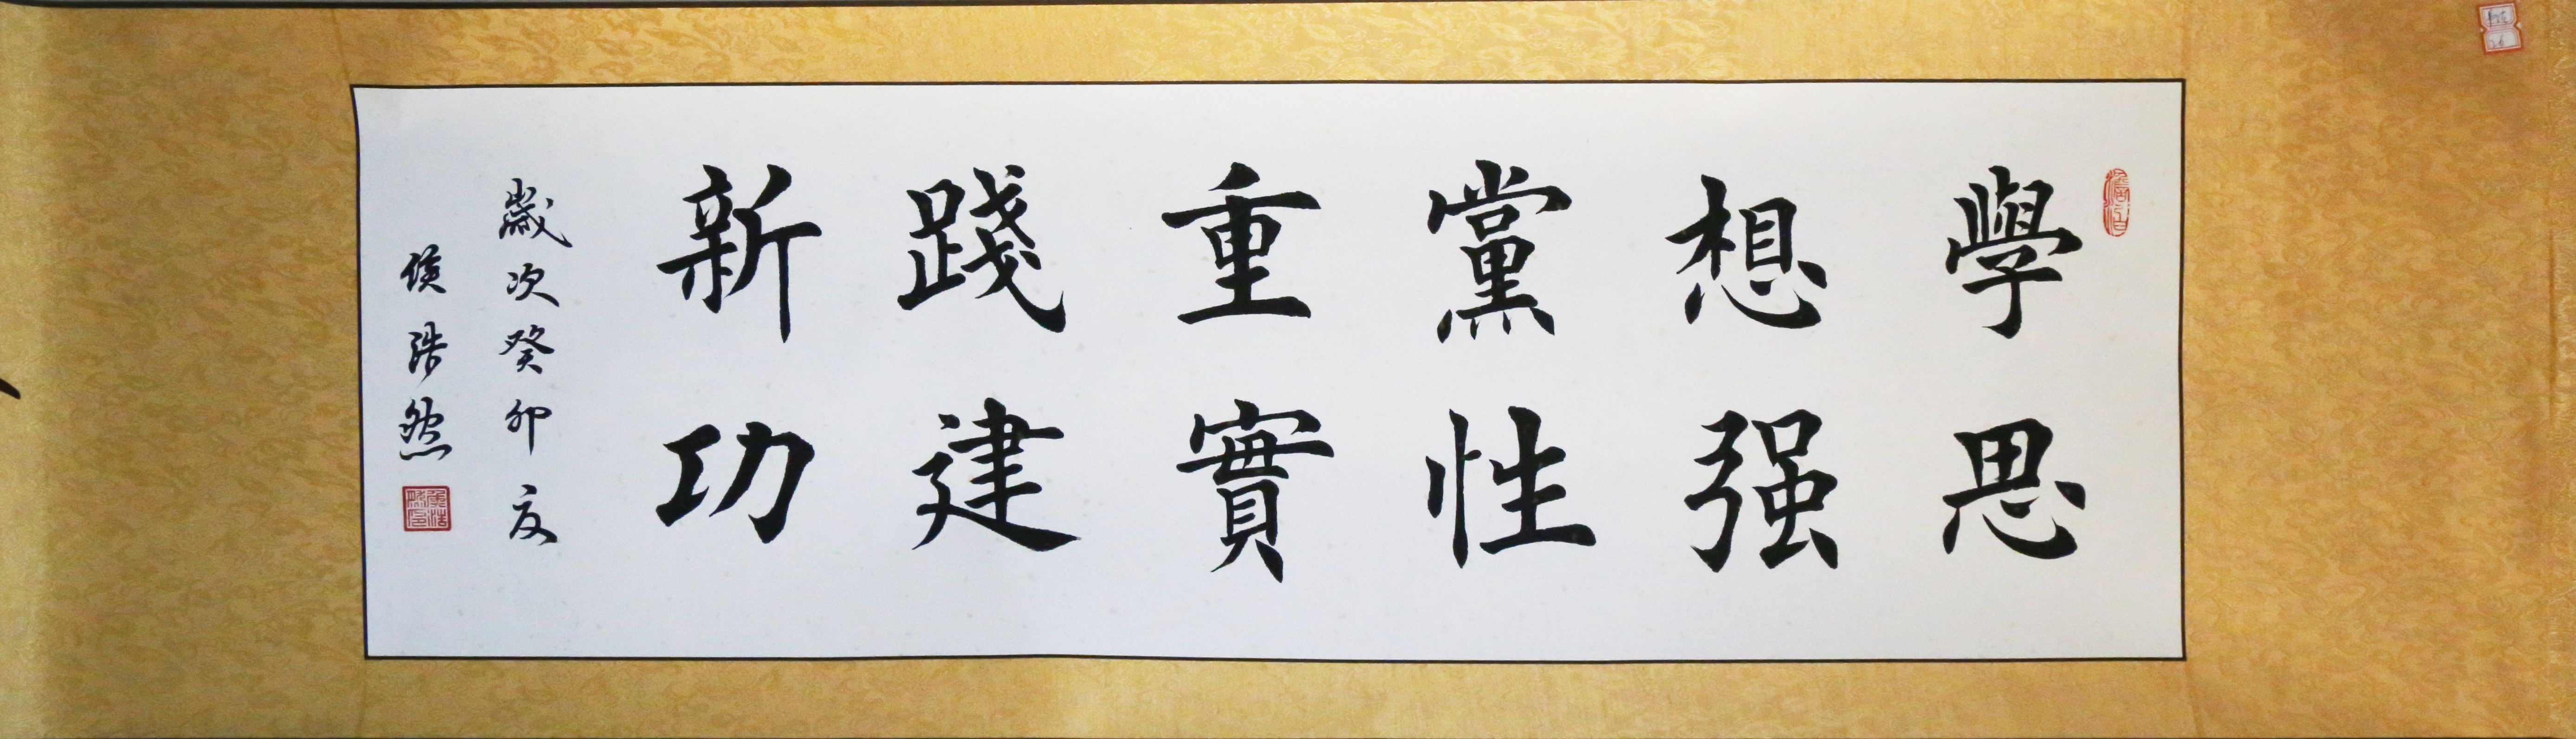 學思
想强
黨性
重實
踐建
新功
歲次癸卯夏
侯浩然